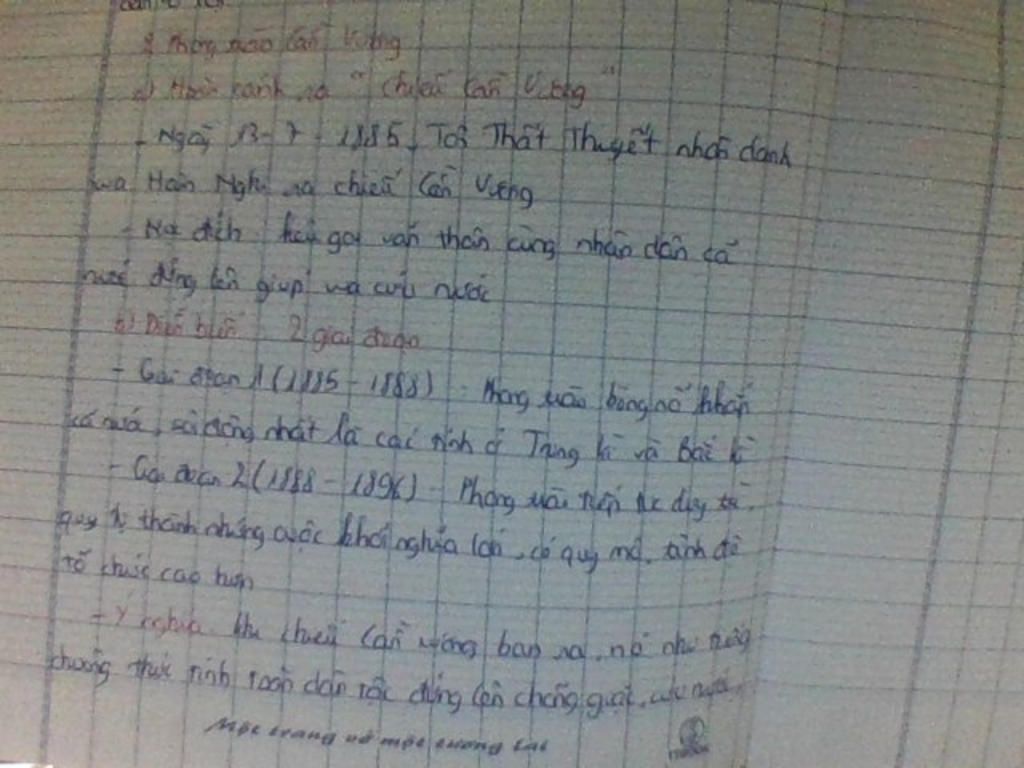 1 Phong trào Cần Vương
a) Hoàn cảnh ra "Chiếu Cần Vương"
- Ngày 13-7-1885, Tôn Thất Thuyết nhân danh
vua Hàm Nghi ra chiếu Cần Vương
- Mục đích: kêu gọi văn thân cùng nhân dân cả
nước đứng lên giúp vua cứu nước
b) Diễn biến: 2 giai đoạn
- Giai đoạn 1 (1885-1888): Phong trào bùng nổ khắp
cả nước, sôi động nhất là các tỉnh ở Trung kì và Bắc kì
- Giai đoạn 2 (1888-1896) - Phong trào tiếp tục duy trì,
quy tụ thành những cuộc khởi nghĩa lớn, có quy mô, trình độ
tổ chức cao hơn
- Ý nghĩa: khi chiếu Cần vương ban ra, nó như tiếng
chuông thức tỉnh toàn dân tộc đứng lên chống giặc, cứu nước